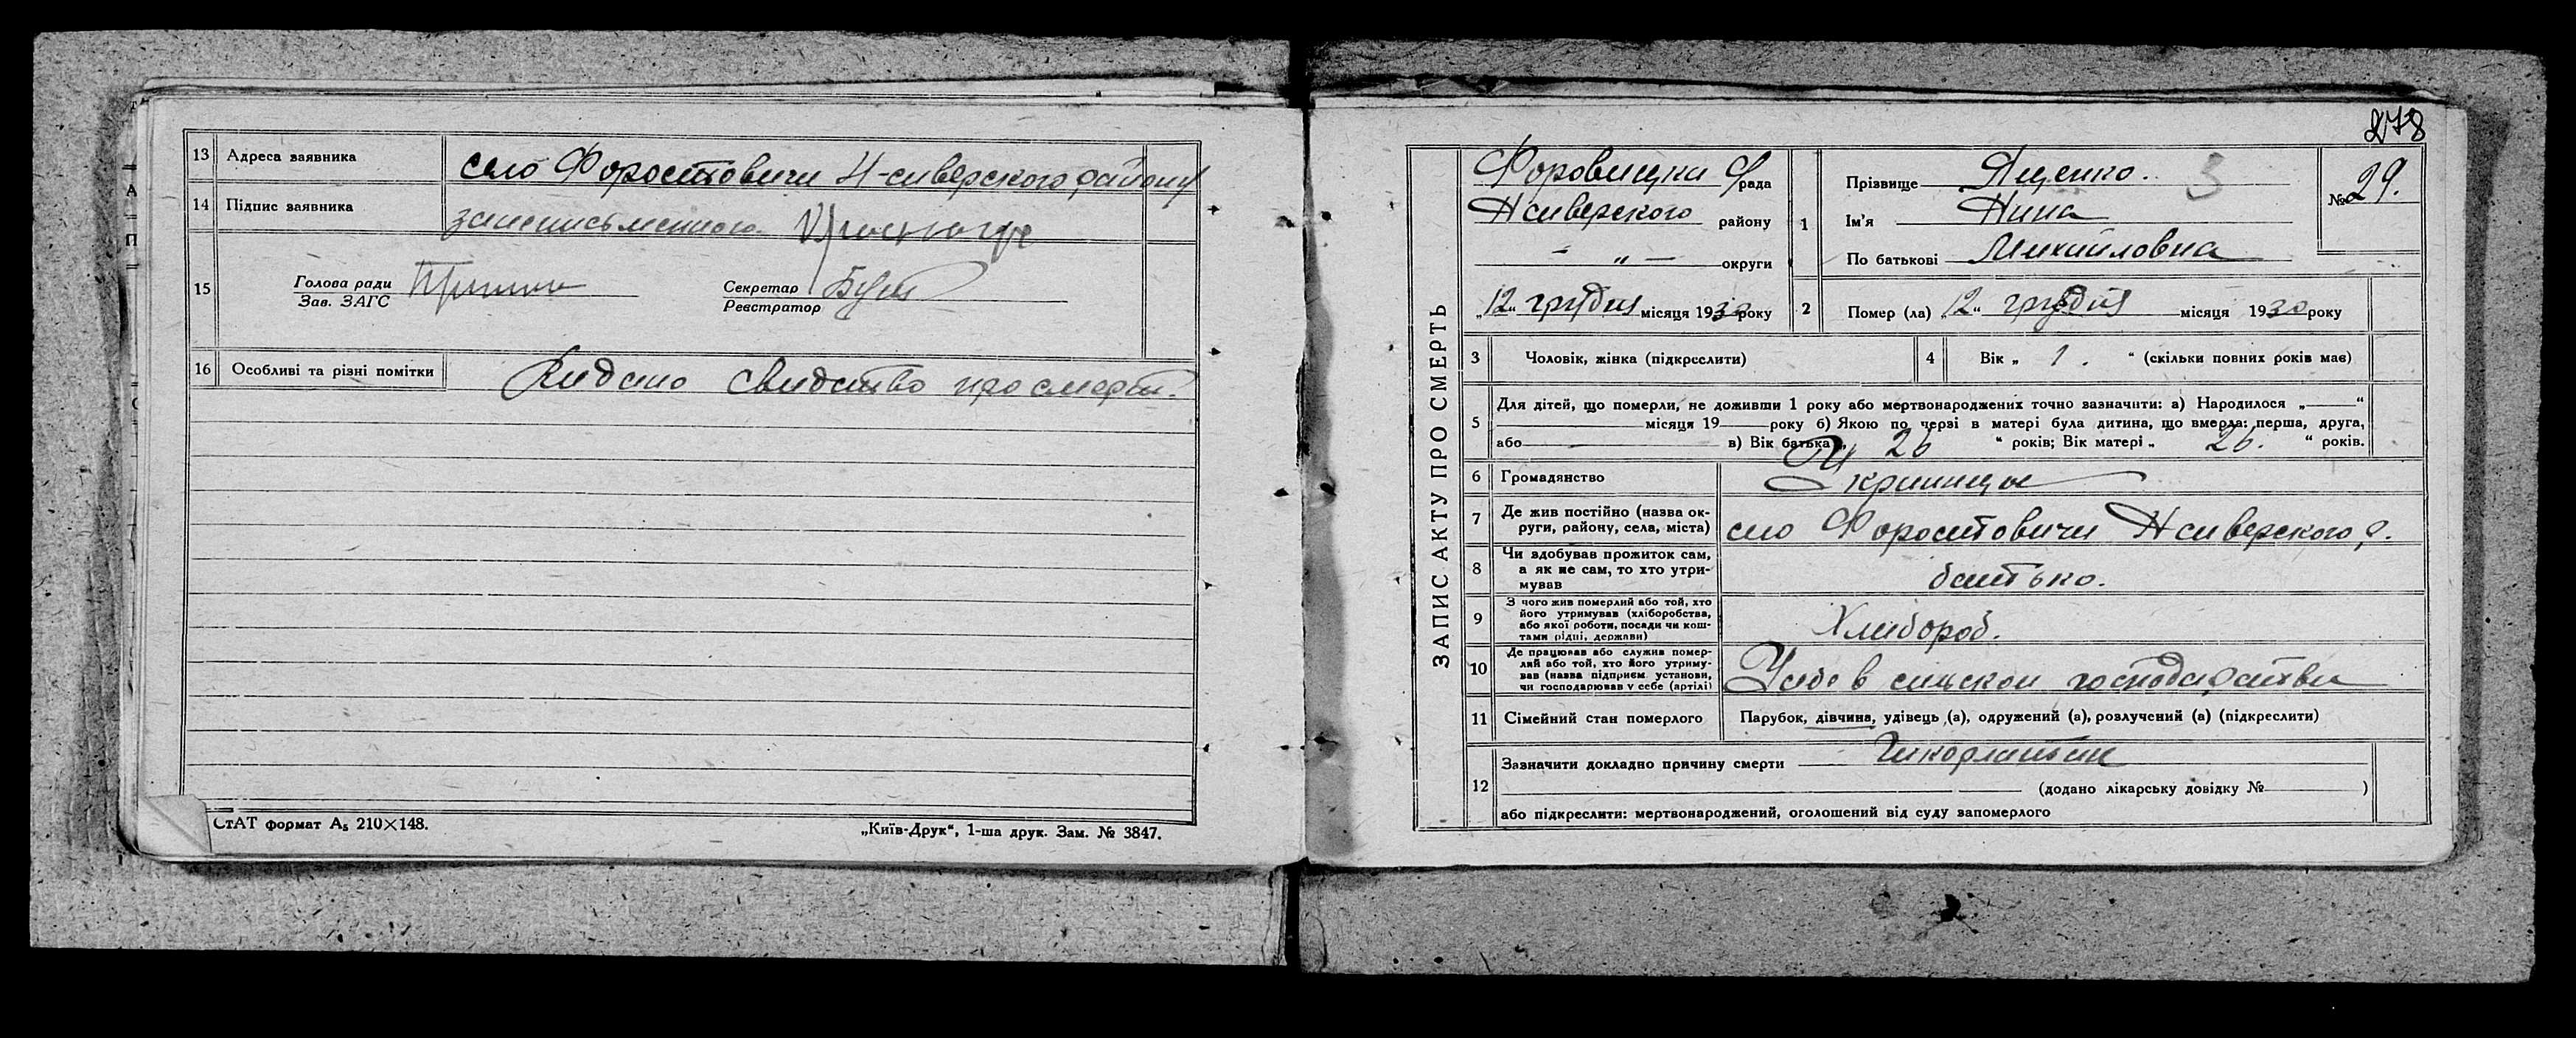 13 Адреса заявника село Форостовичи Н-сиверского району
14 Підпис заявника
15 Голова ради
Зав. ЗАГС
Секретар Бут
Реєстратор
16 Особливі та різні помітки Видано свидотство про смерть.
СтАТ формат А₅ 210×148.
„Київ-Друк“, 1-ша друк. Зам. № 3847.
278
ЗАПИС АКТУ ПРО СМЕРТЬ
рада
Н сиверского району
– „ – округи
„12“ грудня місяця 1930 року
1 Прізвище Яценко. 3
Ім'я Нина
По батькові Михайловна
№ 29.
2 Помер (ла) „12“ грудня місяця 1930 року
3 Чоловік, жінка (підкреслити)
4 Вік „ 1. “ (скільки повних років має)
5 Для дітей, що померли, не доживши 1 року або мертвонароджених точно зазначити: а) Народилося „ “
місяця 19 року б) Якою по черзі в матері була дитина, що вмерла: перша, друга,
або в) Вік батька „ 26 “ років; Вік матері „ 26. “ років.
6 Громадянство
7 Де жив постійно (назва ок-
руги, району, села, міста) село Форостовичи Н сиверского р.
8 Чи здобував прожиток сам,
а як не сам, то хто утри-
мував батько.
9 З чого жив померлий або той, хто
його утримував (хліборобства,
або якої роботи, посади чи кош-
тами рідні, держави) Хлибороб.
10 Де працював або служив помер-
лий або той, хто його утриму-
вав (назва підприєм. установи,
чи господарював у себе (артілі) У себе в сильском господарстви
11 Сімейний стан померлого Парубок, дівчина, удівець (а), одружений (а), розлучений (а) (підкреслити)
12 Зазначити докладно причину смерти
(додано лікарську довідку № )
або підкреслити: мертвонароджений, оголошений від суду запомерлого